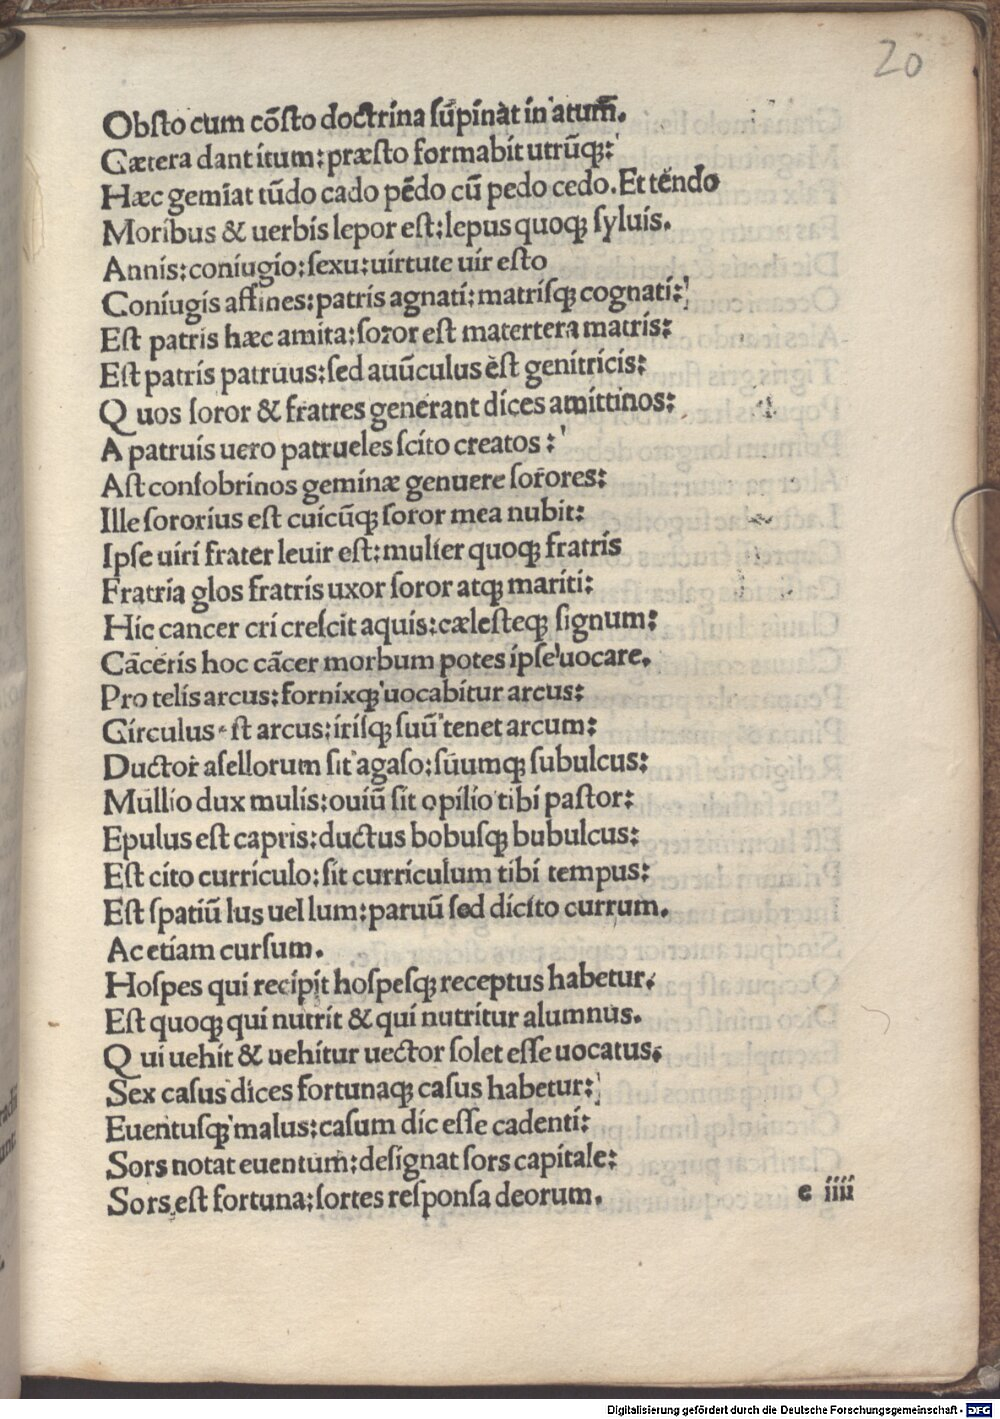 20
Obſto cum cõſto doctrina ſũpinat in atum̃.
Cætera dant itum: præſto formabit utrũq;:
Hæc gemiat tũdo cado pẽdo cũ pedo cedo. Et tẽndo
Moribus & uerbis lepor eſt: lepus quoq; ſyluis.
Annis: coniugio: ſexu: uirtute uir eſto
Coniugis affines: patris agnati: matriſq; cognati:
Eſt patris hæc amita: ſoror eſt matertera matris:
Eſt patris patruus: ſed auũculus eſt genitricis:
Quos ſoror & fratres generant dices amittinos:
A patruis uero patrueles ſcito creatos:
Aſt conſobrinos geminæ genuere ſorores:
Ille ſororius eſt cuicũq; ſoror mea nubit:
Ipſe uiri frater leuir eſt: mulier quoq; fratris
Fratria glos fratris uxor ſoror atq; mariti:
Hic cancer cri creſcit aquis: cæleſteq; ſignum:
Cãceris hoc cãcer morbum potes ipſe uocare.
Pro telis arcus: fornixq; uocabitur arcus:
Circulus eſt arcus: iriſq; ſuũ tenet arcum:
Ductor aſellorum ſit agaſo: ſuumq; ſubulcus:
Mullio dux mulis: ouiũ ſit opilio tibi paſtor:
Epulus eſt capris: ductus bobuſq; bubulcus:
Eſt cito curriculo: ſit curriculum tibi tempus:
Eſt ſpatiũ lus uel lum: paruũ ſed dicito currum.
Ac etiam curſum.
Hoſpes qui recipit hoſpeſq; receptus habetur.
Eſt quoq; qui nutrit & qui nutritur alumnus.
Qui uehit & uehitur uector ſolet eſſe uocatus.
Sex caſus dices fortunaq; caſus habetur:
Euentuſq; malus: caſum dic eſſe cadenti:
Sors notat euentum: deſignat ſors capitale:
Sors eſt fortuna: ſortes reſponſa deorum.
e iiii
Digitalisierung gefördert durch die Deutsche Forschungsgemeinschaft - DFG